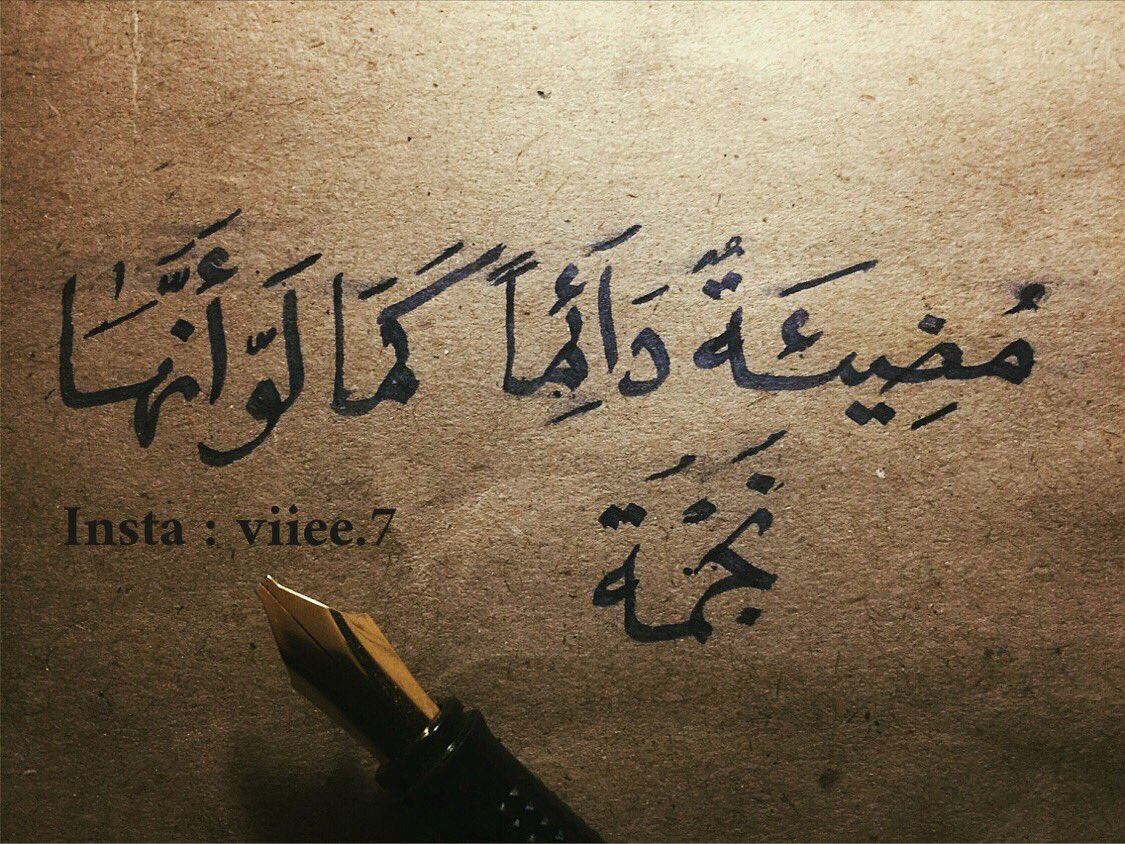 مُضِيئَةٌ دَائِماً كَمَا لَوّ أَنَّهَا
نَجمَة
Insta : viiee.7